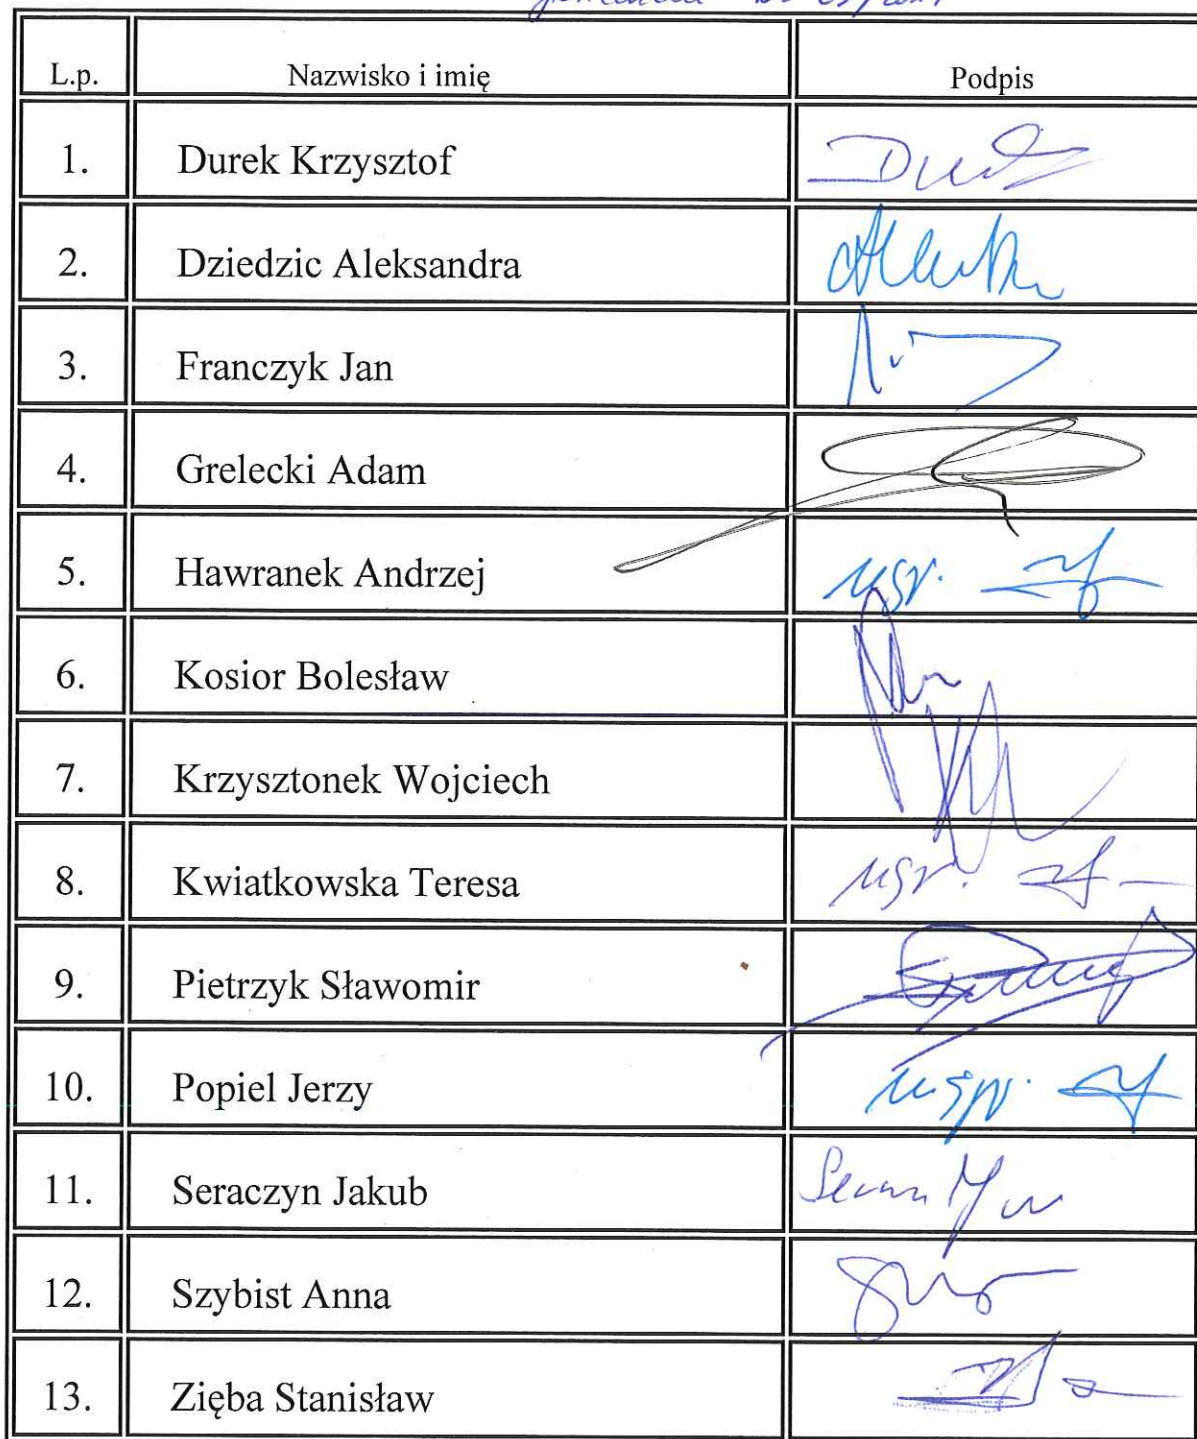 L.p. Nazwisko i imię Podpis
1. Durek Krzysztof
2. Dziedzic Aleksandra
3. Franczyk Jan
4. Grelecki Adam
5. Hawranek Andrzej usp.
6. Kosior Bolesław
7. Krzysztonek Wojciech
8. Kwiatkowska Teresa usp.
9. Pietrzyk Sławomir
10. Popiel Jerzy usp.
11. Seraczyn Jakub
12. Szybist Anna
13. Zięba Stanisław